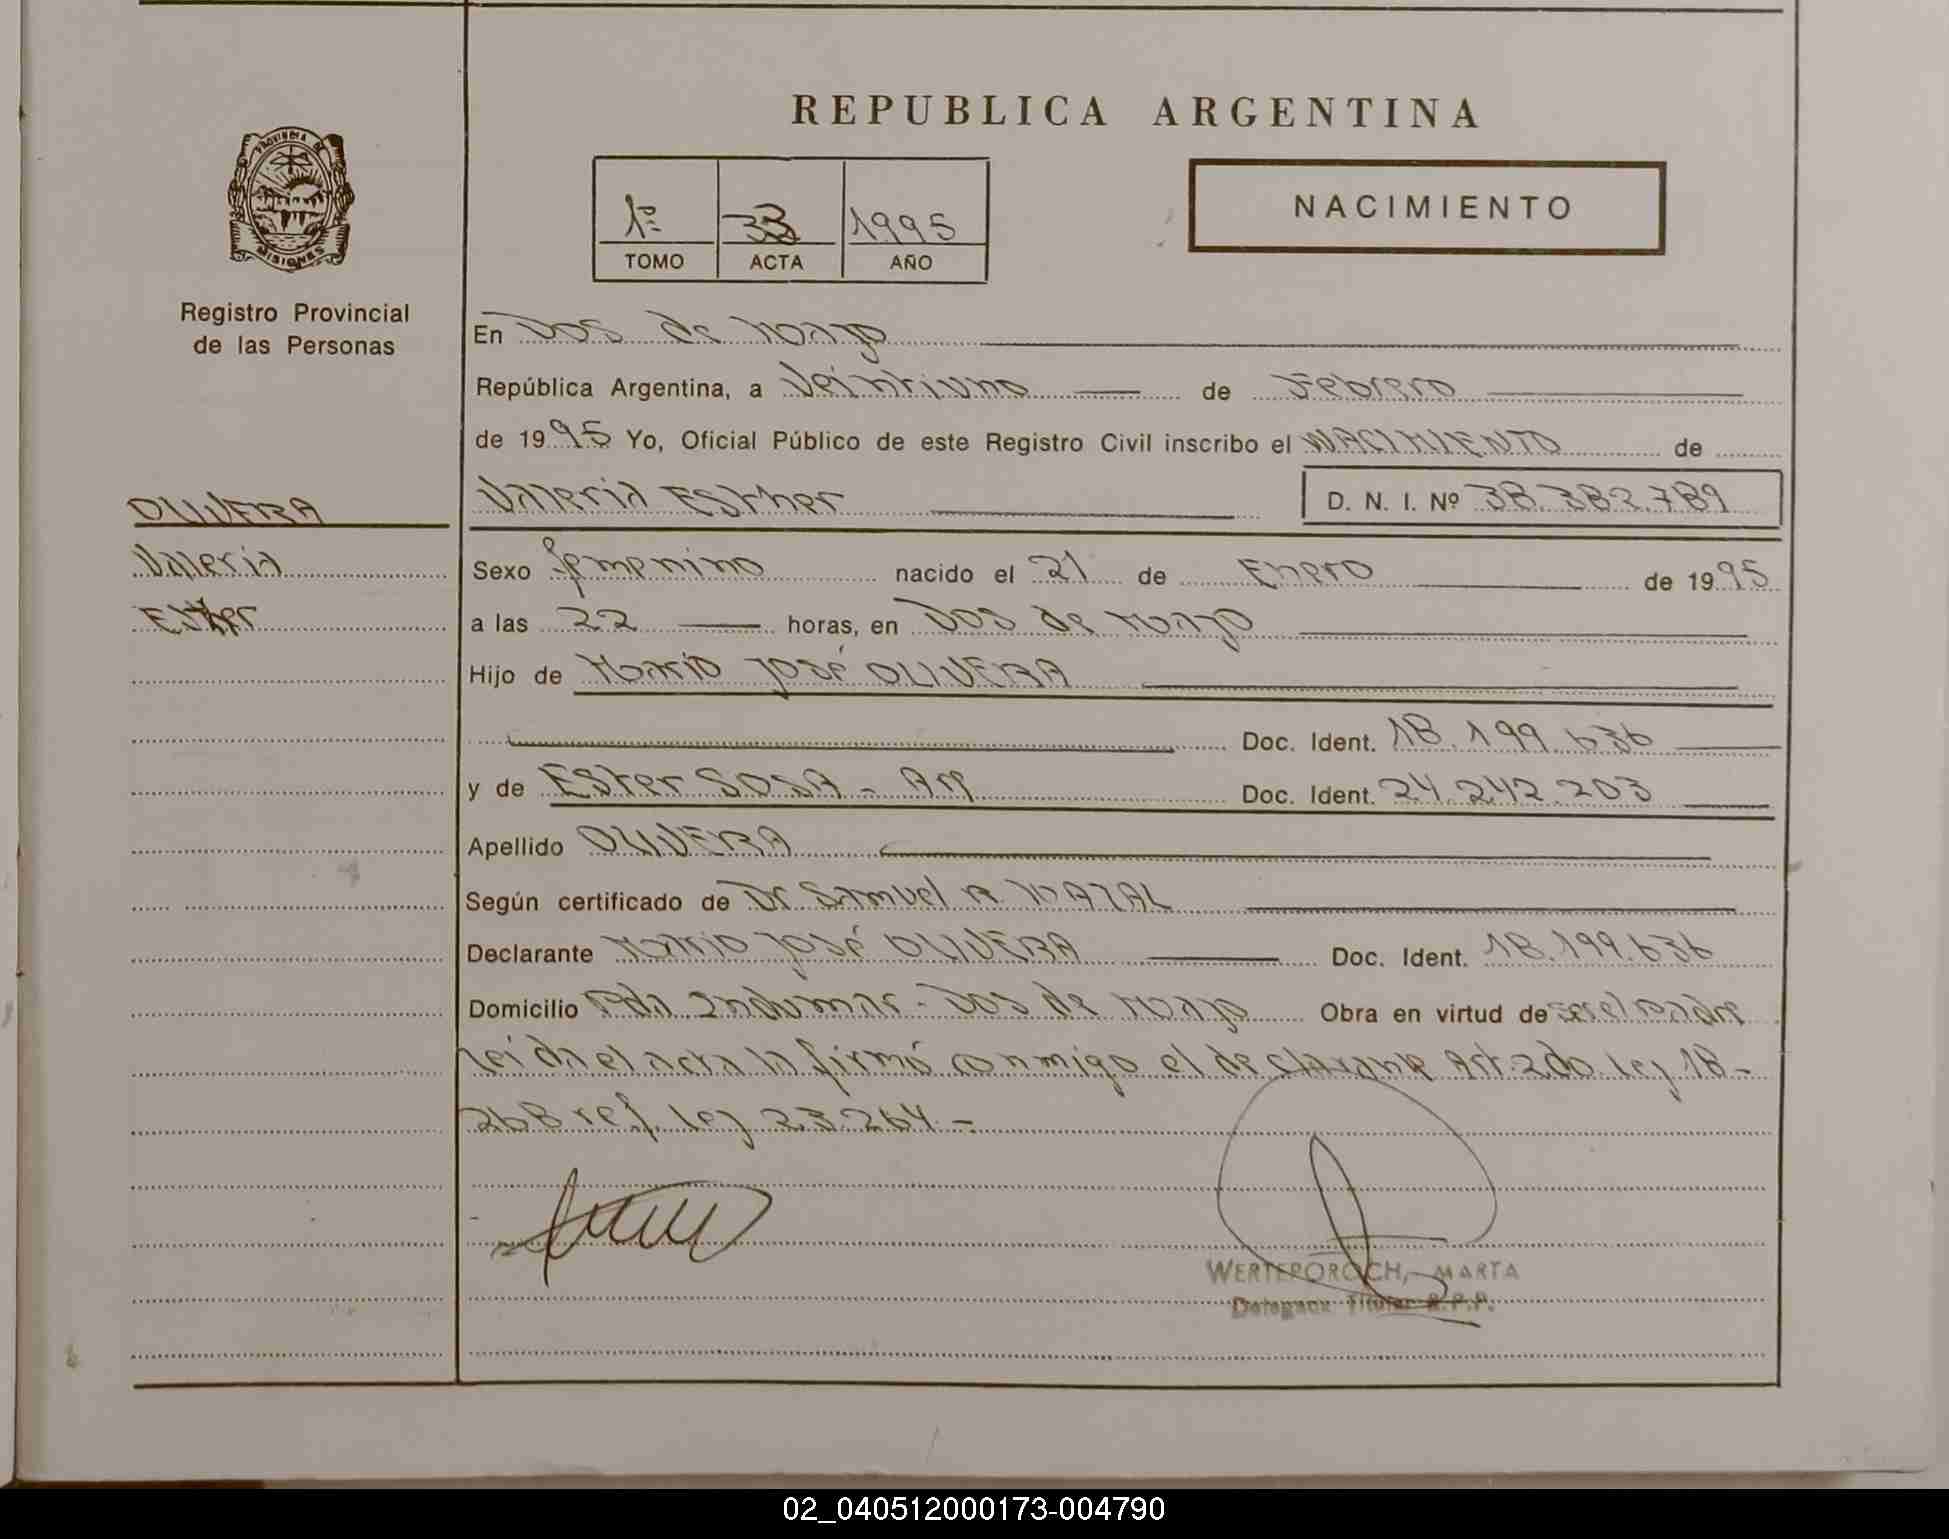 REPUBLICA ARGENTINA
PROVINCIA DE
MISIONES
Registro Provincial
de las Personas
1º 33 1995
TOMO ACTA AÑO
NACIMIENTO
En Dos de Mayo
República Argentina, a Veintiuno de Febrero
de 1995 Yo, Oficial Público de este Registro Civil inscribo el NACIMIENTO de
Valeria Esther D. N. I. Nº 38.382.789
OLIVERA
Valeria
Esther
Sexo femenino nacido el 21 de Enero de 1995
a las 22 horas, en Dos de Mayo
Hijo de Mario José OLIVERA
Doc. Ident. 18.199.636
y de Ester SOSA - Ar Doc. Ident. 24.242.203
Apellido OLIVERA
Según certificado de Dr Samuel R NAZAL
Declarante Mario José OLIVERA Doc. Ident. 18.199.636
Domicilio Pda Indumar - Dos de Mayo Obra en virtud de ser el padre
Leida el acta la firmó conmigo el declarante Art. 2do. ley 18-
268 ref. ley 23.264.-
WERTEPOROCH, MARTA
Delegada Titular R.P.P.
02_040512000173-004790